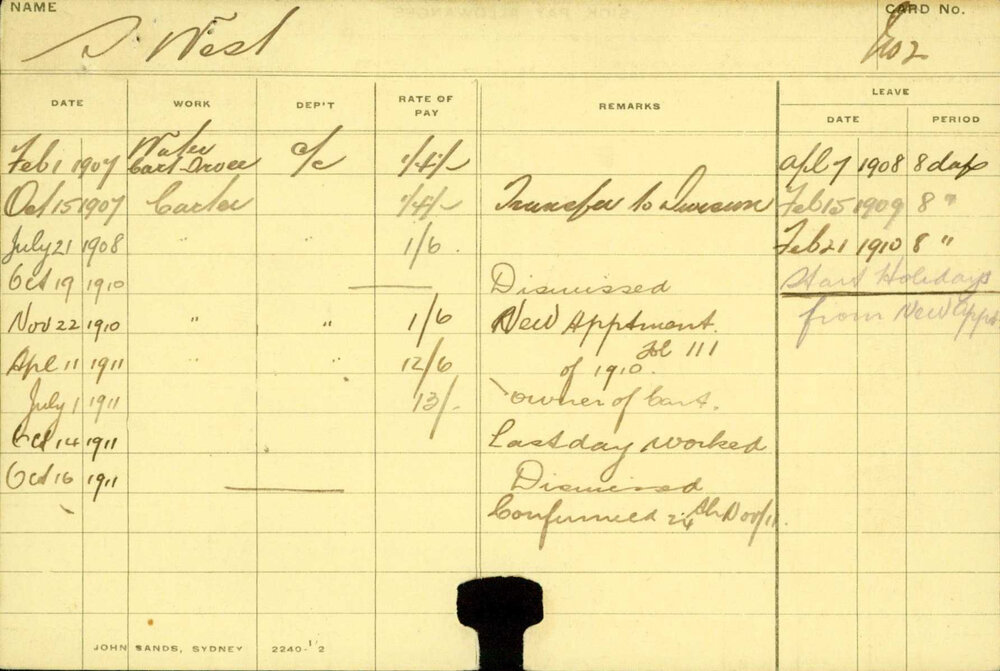 NAME
CARD No.
S. West
202
DATE WORK DEP'T RATE OF PAY REMARKS LEAVE
DATE PERIOD
Water
Feb 1 1907 Cart Driver C/C 1/4/- Apl 7 1908 8 days
Oct 15 1907 Carter 1/4/- Transfer to Division Feb 15 1909 8 "
July 21 1908 " " 1/6 . Feb 21 1910 8 "
Oct 19 1910 Dismissed Start Holidays
Nov 22 1910 " " 1/6 New Apptment. from New Appt
Apl 11 1911 " " 12/6 Fol 111
of 1910.
July 1 1911 13/- owner of Cart.
Oct 14 1911 Last day worked
Oct 16 1911 Dismissed
Confirmed 24th Nov/11.
JOHN SANDS, SYDNEY 2240-1/2